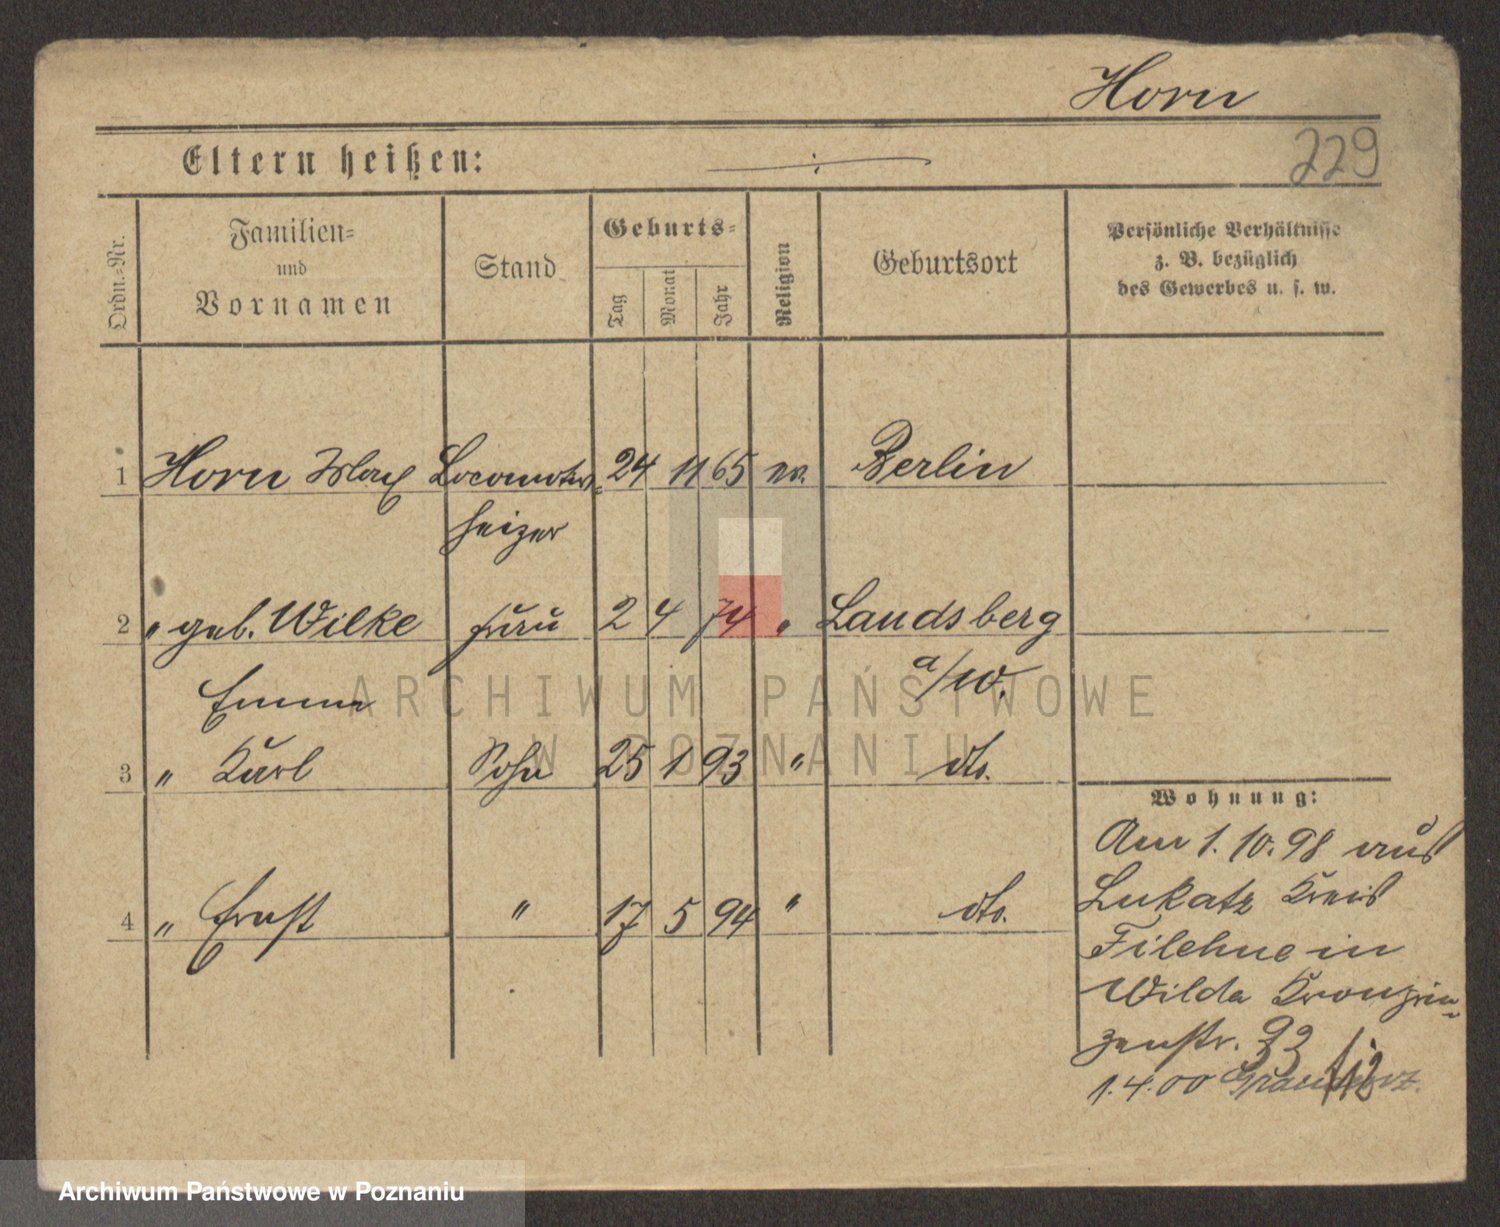 Horn
229
Eltern heißen:
Ordn.-Nr.
Familien-
und
Vornamen
Stand
Geburts-
Tag
Monat
Jahr
Religion
Geburtsort
Persönliche Verhältnisse
z. B. bezüglich
des Gewerbes u. s. w.
1 Horn Max Locomotiv- 24 11 65 ev. Berlin
heizer
2 " geb. Wilke Frau 2 4 74 " Landsberg
Emma a/W.
3 " Karl Sohn 25 1 93 " dto.
4 " Ernst " 17 5 94 " dto.
Wohnung:
Am 1.10.98 aus
Lukatz Kreis
Filehne in
Wilda Kronprin-
zenstr. 93
1.4.00
ARCHIWUM PAŃSTWOWE
W POZNANIU
Archiwum Państwowe w Poznaniu